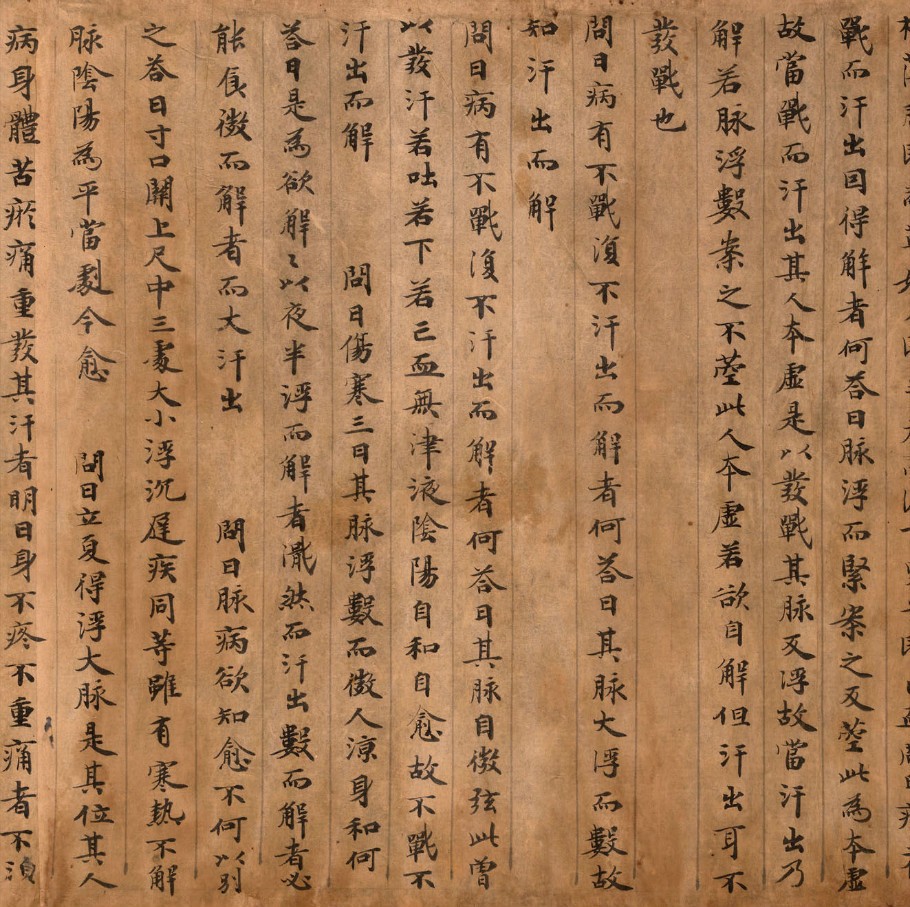 戰而汗出囙得解者何荅曰脉浮而緊案之反莖此為本虛
故當戰而汗出其人本虛是以發戰其脉反浮故當汗出乃
解若脉浮數案之不莖此人本虛若欲自解但汗出耳不
發戰也
問曰病有不戰復不汗出而解者何荅曰其脉大浮而數故
知汗出而解
問曰病有不戰復不汗出而解者何荅曰其脉自微弦此曾
以發汗若吐若下若亡血無津液陰陽自和自愈故不戰不
汗出而解 問曰傷寒三日其脉浮數而微人涼身和何
荅曰是為欲解々以夜半浮而解者濈然而汗出數而解者必
能食微而解者而大汗出 問曰脉病欲知愈不何以別
之荅曰寸口關上尺中三處大小浮沉遲疾同等雖有寒熱不解
脉陰陽為平當劇今愈 問曰立夏得浮大脉是其位其人
病身體苦瘀痛重發其汗者明日身不疼不重痛者不須